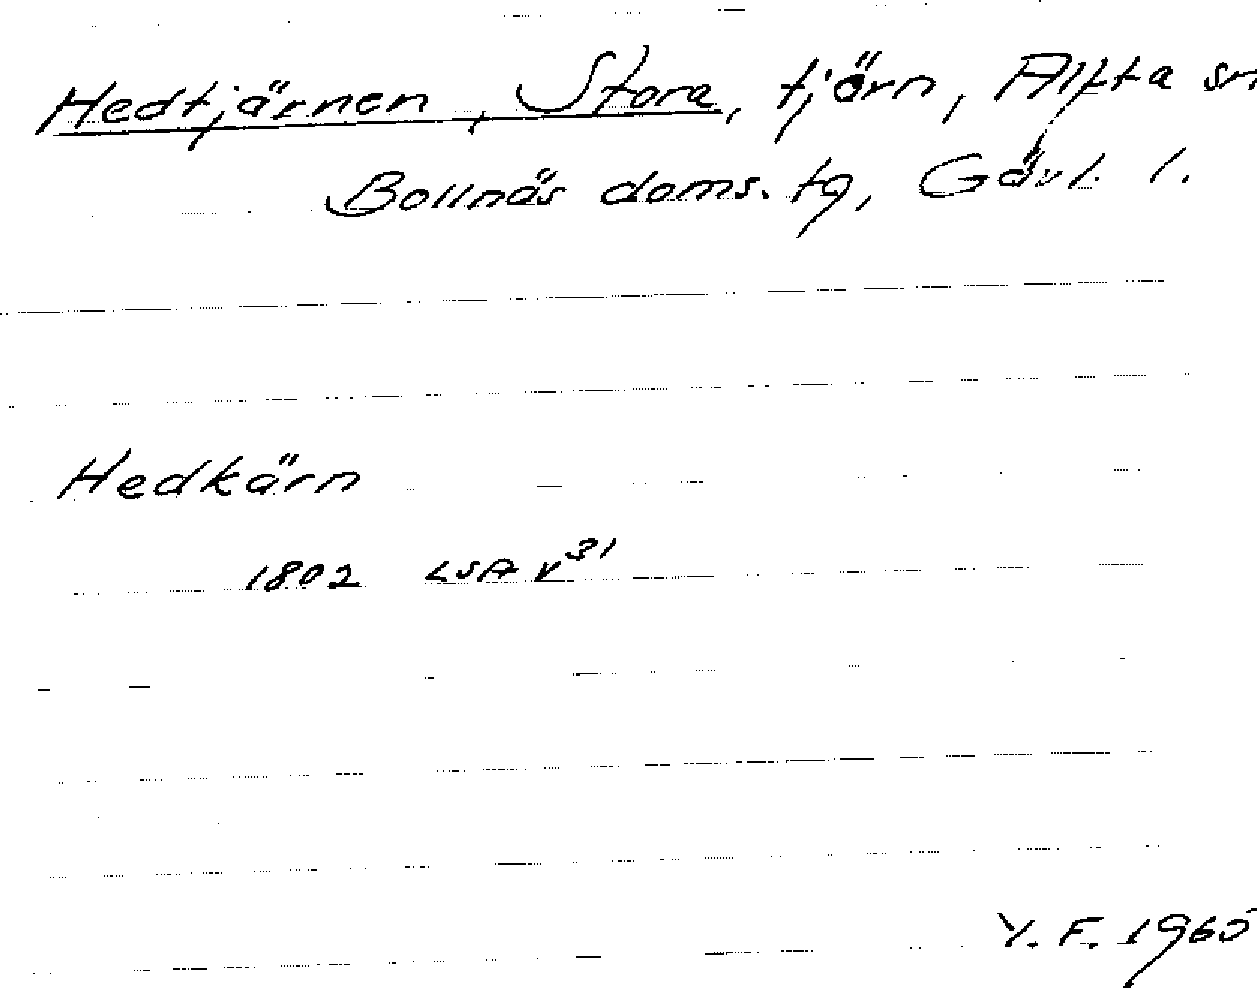 Hedtjärnen, Stora, tjärn, Alfta sn
Bollnäs doms. tg, Gävl. l.
Hedkärn
1802 LSA V31
Y. F. 1965